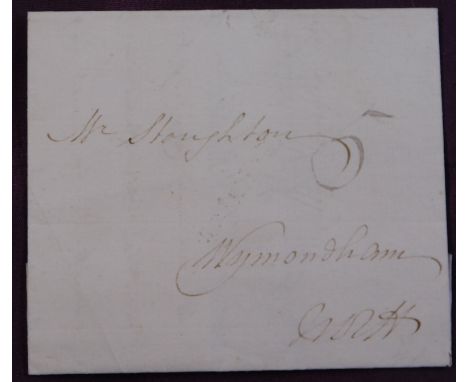 Mr Stoughton 5
Wymondham